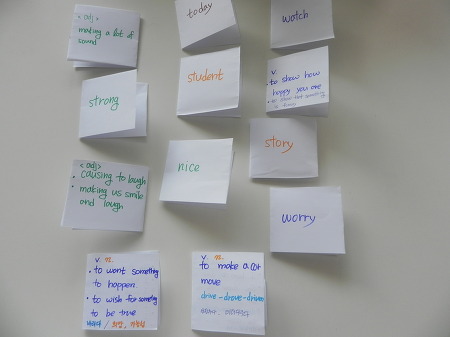 <adj>
making a lot of
sound
today
watch
strong
student
v.
to show how
happy you are
story
<adj>
• causing to laugh
• making us smile
and laugh
nice
worry
v. n.
• to want something
to happen.
• to wish for something
to be true
바라다 / 희망, 가능성
v. n.
to make a car
move
drive - drove - driven